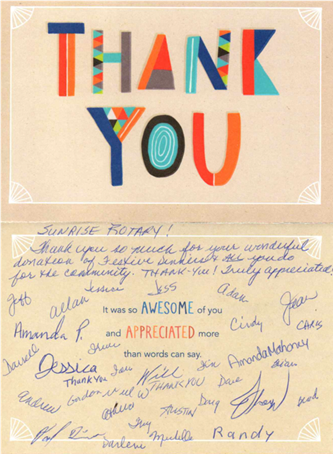 THANK
YOU
SUNRISE ROTARY!
Thank you so much for your wonderful
donation of Festive Dinners & all you do
for the community. THANK-YOU! Truly appreciated!
Jess
Jeff
Allan
Adam
Jean
It was so AWESOME of you
Amanda P.
and APPRECIATED more
Cindy
CHRIS
than words can say.
Jessica
Amanda Mahoney
Thank You
Will
THANK YOU
Dave
Brian
Andrew
Gordon
AUSTIN
Doug
Rod
Troy
Darlene
Michelle
Randy